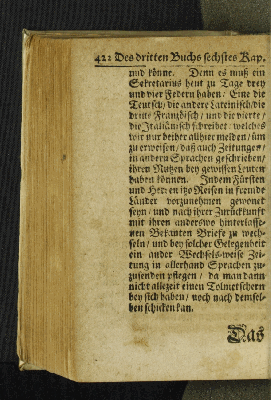 422 Des dritten Buchs sechstes Kap.
und könne. Denn es muß ein
Sekretarius heut zu Tage drey
und vier Federn haben / Eine die
Teutsch / die andere Lateinisch / die
dritte Französisch / und die vierte /
die Italiänisch schreibet / welches
wir nur deiher allhier melden / um
zu erweisen / daß auch Zeitungen /
in andern Sprachen geschrieben /
ihren Nutzen bey gewissen Leuten
haben können. Indem Fürsten
und Herren itzo Reisen in fremde
Länder vorzunehmen gewonet
seyn / und nach ihrer Zurückkunft
mit ihren anderswo hinterlasse-
nen Bekanten Briefe zu wech-
seln / und bey solcher Gelegenheit
ein ander Wechsels-weise Zei-
tung in allerhand Sprachen zu-
zusenden pflegen / da man dann
nicht allezeit einen Tolmetschern
bey sich haben / noch nach demsel-
ben schicken kan.
Das